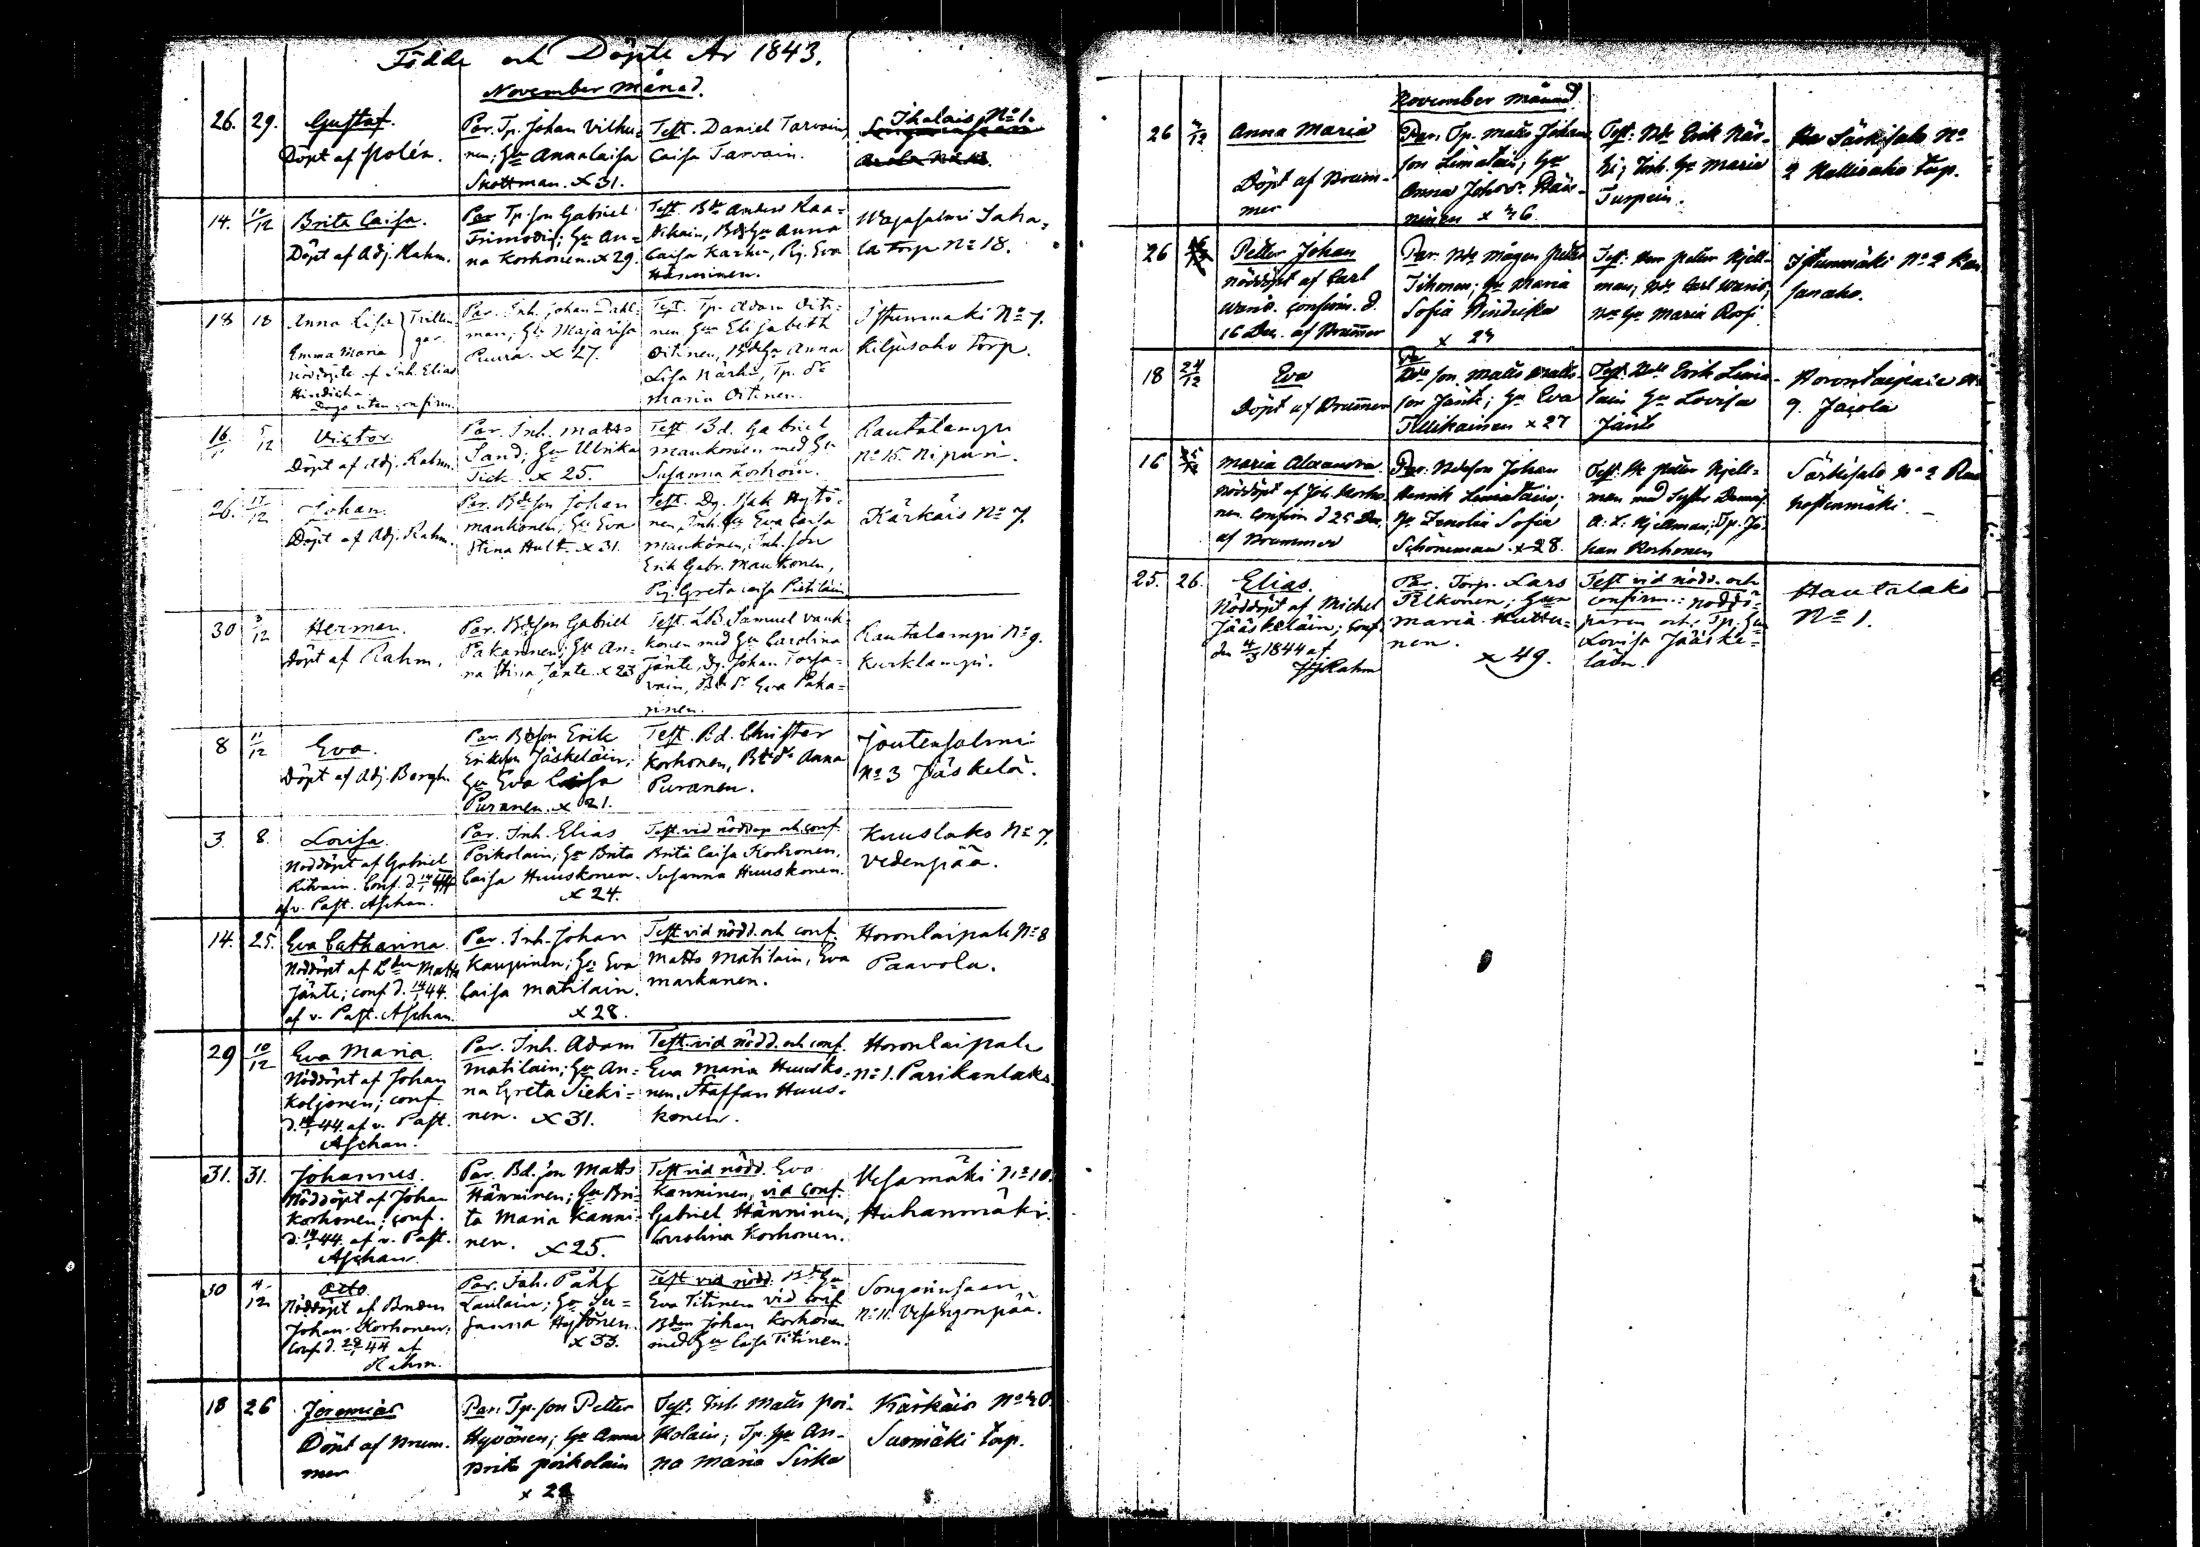 Födde och Döpte År 1843.
November Månad.
26. 29. Gustaf.
Döpt af Polén.
Par. Tp. Johan Vilhu=
nen; Hu Annalaisa
Skottman. x 31.
Test. Daniel Tarvain,
Caisa Tarvain.
Ihalais No 1.
14. 10/12 Brita Caisa.
Döpt af Adj. Rahm.
Par Tp. son Gabriel
Trimodig; Hu An=
na Korhonen. x 29.
Test. Bde Anders Kaa=
Caisa Karhu, Pig. Eva
Hänninen.
Wajasalmi Saha=
la torp No 18.
18 18 Anna Lisa
Emma Maria
Trillin=
gar
nöddöpte af Inh. Elias
Hindricha
Dogo utan confirm.
Par. Inh. Johan Dahl=
man; Hu Maja Lisa
Puura. x 27.
Test. Tp. Adam Oiti=
nen, Hun Elisabeth
Oitinen, BdeHu Anna
Lisa Närhi, Tp. dr
Maria Oitinen.
Istunmäki No 7.
Kiljusaho torp.
16/11 5/12 Victor.
Döpt af Adj. Rahm.
Par. Inh. Matts
Sand; Hu Ulrika
Tick. x 25.
Test Bd. Gabriel
Maukonen med Hu
Susanna Korhoin.
Rautalampi
No 15. Nipuri.
26. 17/12 Johan.
Döpt af Adj. Rahm.
Par. Bdeson Johan
Maukonen; Hu Eva
Stina Hult. x 31.
Test. Dg. Isak Hytö=
nen, Inh. Hu Eva Caisa
Maukonen, Inh. son
Erik Gabr. Maukonen,
Pig. Greta Caisa Pietiläin
Kärkäis No 7.
30 3/12 Herman.
Döpt af Rahm.
Par. Bdeson Gabriel
Pakarinen; Hu An=
na Stina Jänte. x 23
Test. LBd. Samuel Vauh=
konen med Hu Carolina
Jänte, Dg. Johan Torsa=
vain, Bd. dr Eva Paka=
rinen.
Rautalampi No 9.
Kurklampi.
8 11/12 Eva.
Döpt af Adj. Bergh.
Par. Bdeson Erik
Eriksson Jäskeläin;
Hu Eva Caisa
Puranen. x 21.
Test. Bd. Christer
Korhonen, Bd dr Anna
Puranen.
Joutensalmi
No 3 Jäskelä.
3. 8. Lovisa.
Nöddöpt af Gabriel
af v. Past. Aschan.
Par. Inh. Elias
Poikolain; Hu Brita
Caisa Huuskonen.
x 24.
Test. vid nöddop och conf.
Brita Caisa Korhonen,
Susanna Huuskonen.
Kuuslaks No 7.
Vedenpää.
14. 25. Eva Catharina.
Nöddöpt af Bden Matts
Jänte; conf. d. 14/1 44.
af v. Past. Aschan.
Par. Inh. Johan
Kaupinen; Hu Eva
Caisa Matilain.
x 28.
Test vid nödd. och conf.
Matts Matilain, Eva
Markanen.
Horonlaipale No 8
Paavola.
29 10/12 Eva Maria.
Nöddöpt af Johan
Koljonen; conf.
d. 14/1 44. af v. Past.
Aschan.
Par. Inh. Adam
Matilain; Hu An=
na Greta Sieki=
nen. x 31.
Test. vid nödd. och conf.
Eva Maria Huusko=
nen, Staffan Huus=
konen.
Horonlaipale
No 1. Parikanlaks.
31. 31. Johannes.
Nöddöpt af Johan
Korhonen; conf.
d. 14/1 44. af v. Past.
Aschan.
Par. Bd. son Matts
Hänninen; Hu Bri=
ta Maria Kanni=
nen. x 25.
Test vid nödd. Eva
Kanninen, vid conf.
Gabriel Hänninen,
Carolina Korhonen.
Vesamäki No 10.
Huhanmäki.
30 4/12 Otto.
Nöddöpt af Bonden
Johan Korhonen;
Conf. d. 28/1 44 af
Rahm.
Par. Inh. Påhl
Laulain; Hu Su=
sanna Hytönen.
x 33.
Test vid nödd. Bd Hu
Eva Titinen vid conf
Bden Johan Korhonen
med Hu Caisa Titinen.
Songarinsaari
No 11. Vesangonpää.
18 26 Jeremias
Döpt af Brum-
mer
Par. Tp. son Petter
Hyvönen; Hu Anna
Brita Poikolain
x 22
Test. Inh Matts Poi-
kolain; Tp. Hu An-
na Maria Sirka
Kärkäis No 20.
Suomäki torp.
November Månad
26 Anna Maria
Döpt af Brum-
mer
Par. Tp. Matts Johans
son Limatain; Hu
Anna Johsdr Räs-
ninen
Test: Bde Erik När-
hi; Inh. Hu Maria
Turpein.
Särkisalo No
2 Kallioaho torp.
26 Petter Johan
nöddöpt af Carl
Waris. confirm. d.
16 Dec. af Brummer
Par. Bde mågen Petter
Tikonen; Hu Maria
Sofia Hindrika
Test: Petter Kjell-
man; Bde Carl Waris;
Hu Maria Rossi
Istunmäki No 2
18 24/12 Eva
Döpt af Brummer
Par
Bde son Matts Matts-
son Jänti; Hu Eva
Tillikainen x 27
Test. Bde Erik Lima-
tain Hu Lovisa
Jänti
Horontaipale No
9. Jaiola
16 Maria Alexandra
nöddöpt af Joh. Korho
nen. confirm d 25 Dec.
af Brummer
Par. Bdeson Johan
Henrik Limatain;
Hu Fredrika Sofia
Schöneman. x 28.
Test. Petter Kjell-
man med Syster Demois
A. L. Kjellman; Tp. Jo
han Korhonen
Särkisalo No 2
25. 26. Elias.
Nöddöpt af Michel
Jääskeläin; conf.
den 4/3 1844 af
Rahm
Par. Torp. Lars
Pelkonen; Hun
Maria Huttu=
nen.
x 49.
Test vid nödd. och
confirm.: nöddö=
paren och Tp. Hu
Lovisa Jääske=
läin.
Hautalaks
No 1.